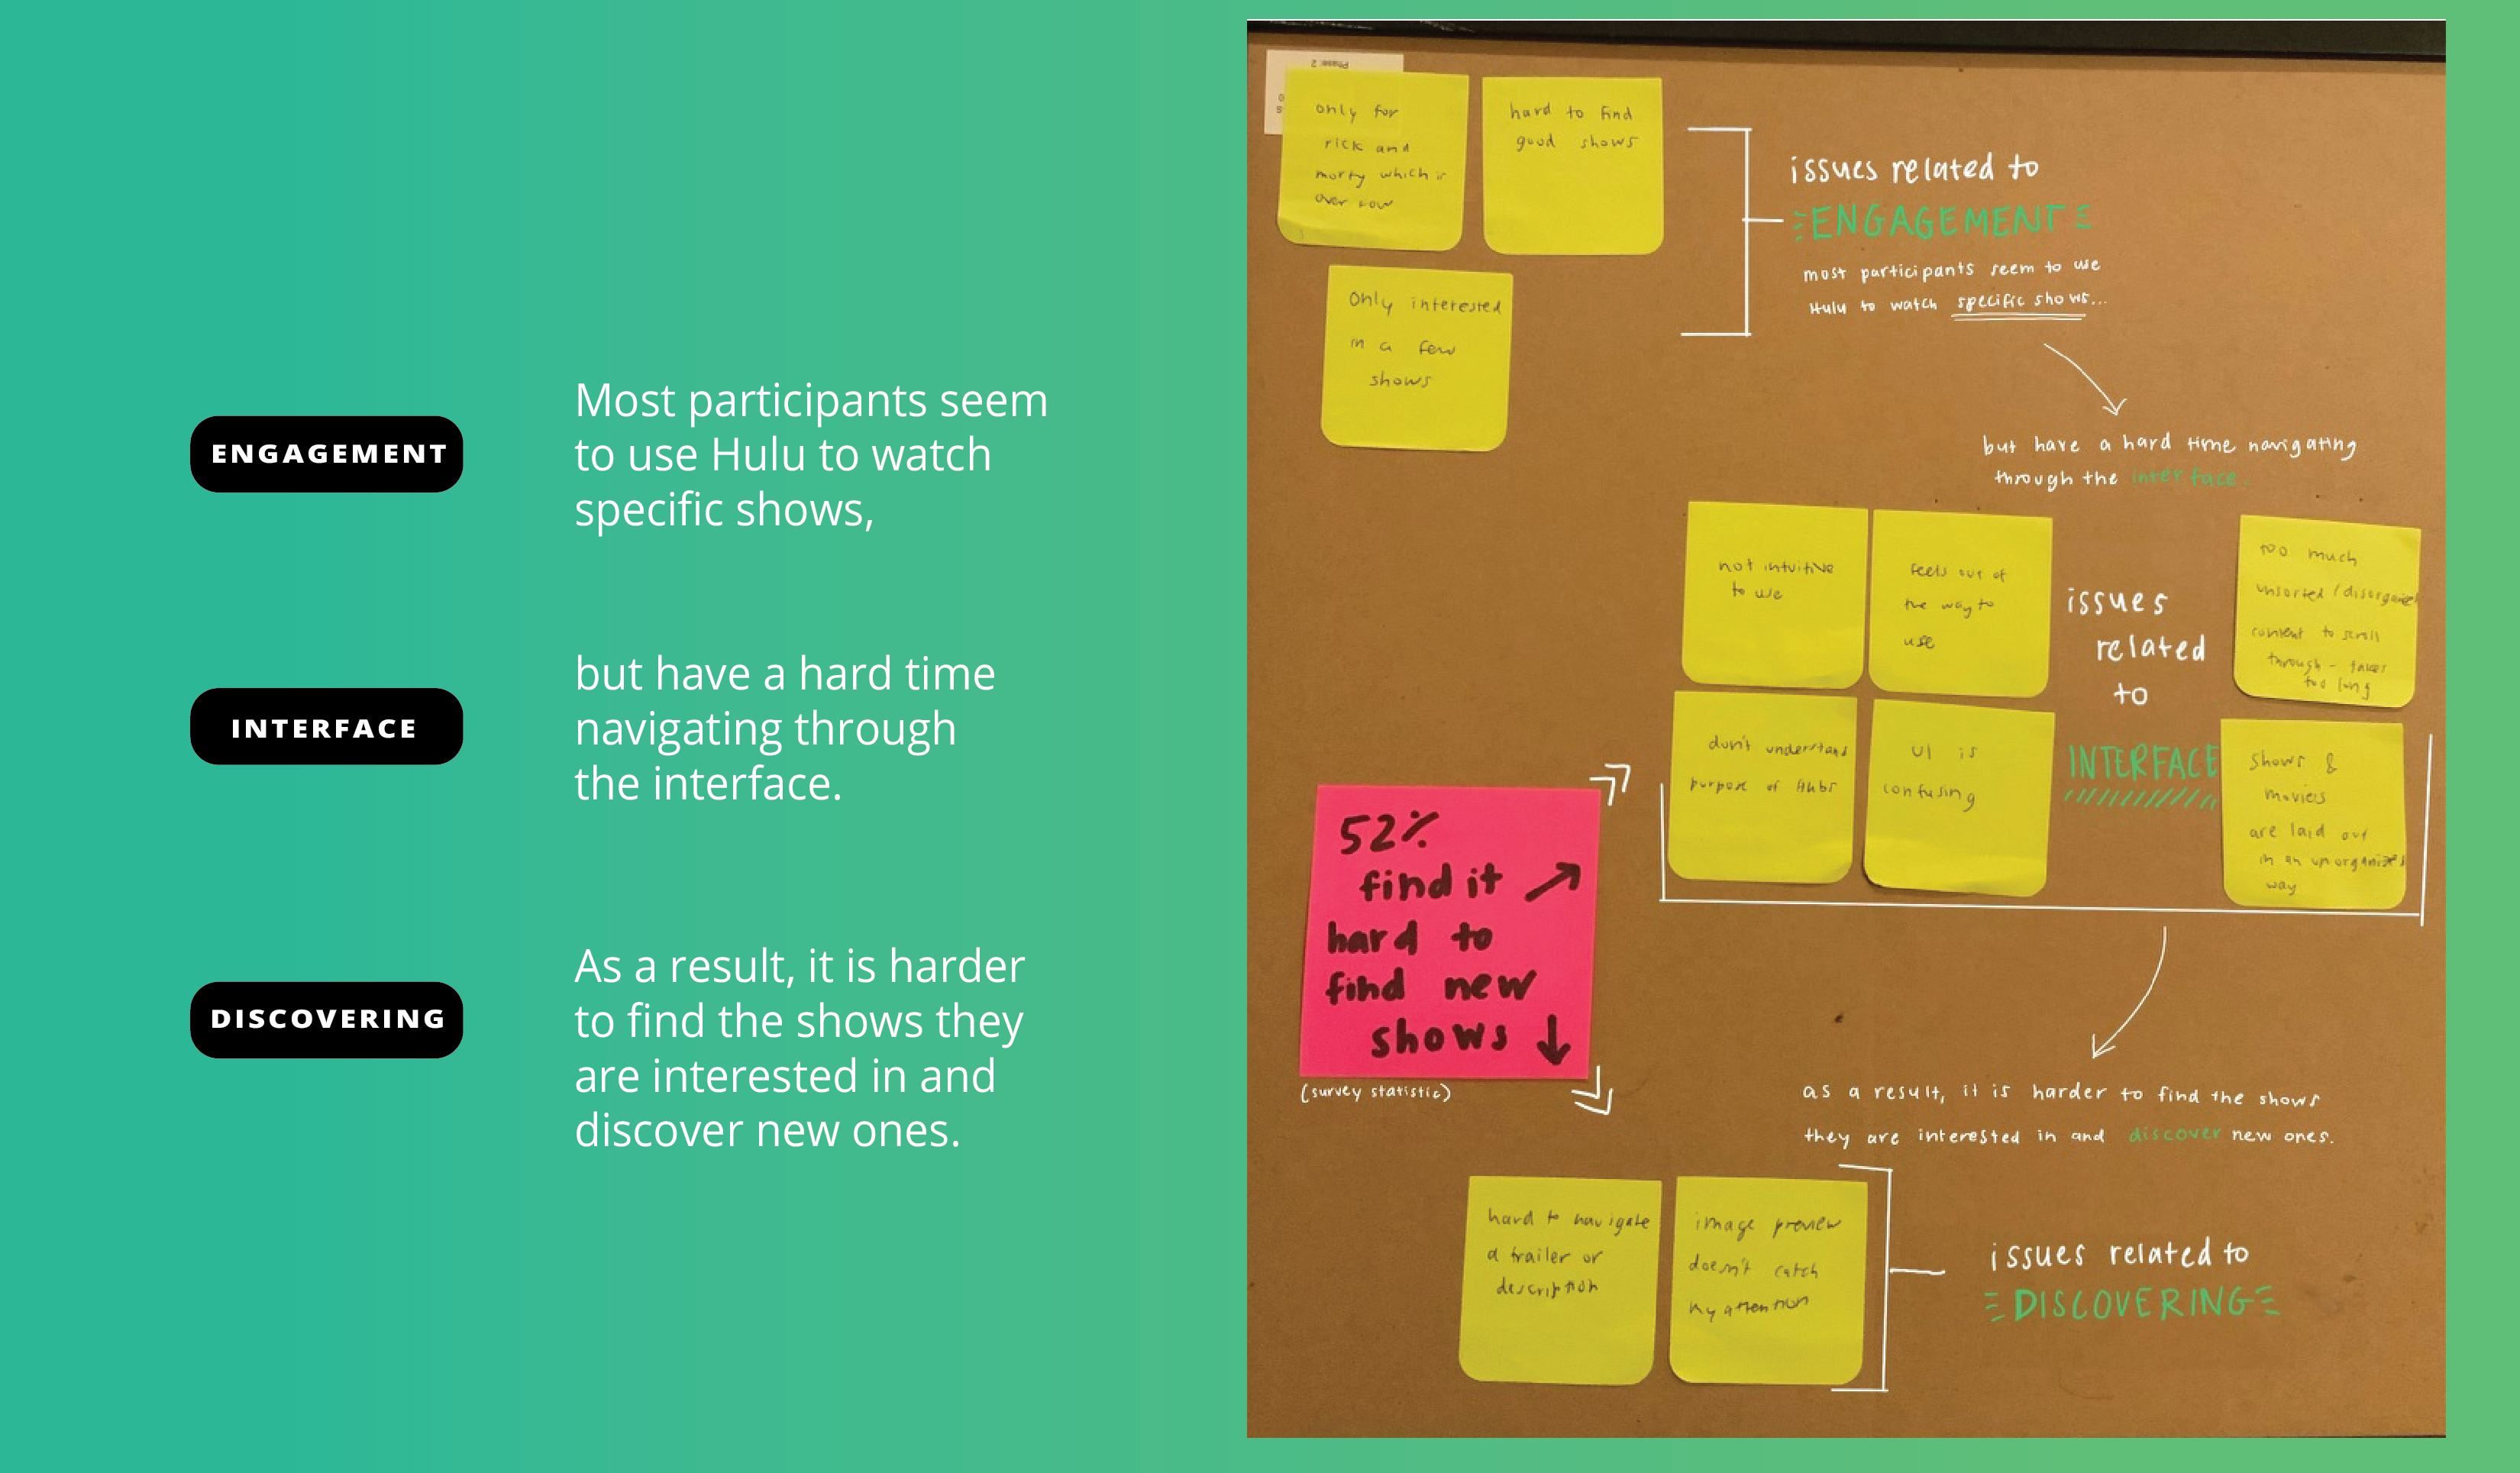 ENGAGEMENT
Most participants seem
to use Hulu to watch
specific shows,
INTERFACE
but have a hard time
navigating through
the interface.
DISCOVERING
As a result, it is harder
to find the shows they
are interested in and
discover new ones.
Phase 2
only for
rick and
morty which is
over now
hard to find
good shows
only interested
in a few
shows
issues related to
ENGAGEMENT
most participants seem to use
Hulu to watch specific shows...
but have a hard time navigating
through the interface.
not intuitive
to use
feels out of
the way to
use
don't understand
purpose of Hubs
UI is
confusing
issues
related
to
INTERFACE
too much
unsorted/disorganized
content to scroll
through - takes
too long
shows &
movies
are laid out
in an unorganized
way
52%
find it
hard to
find new
shows
(survey statistic)
as a result, it is harder to find the shows
they are interested in and discover new ones.
hard to navigate
a trailer or
description
image preview
doesn't catch
my attention
issues related to
DISCOVERING